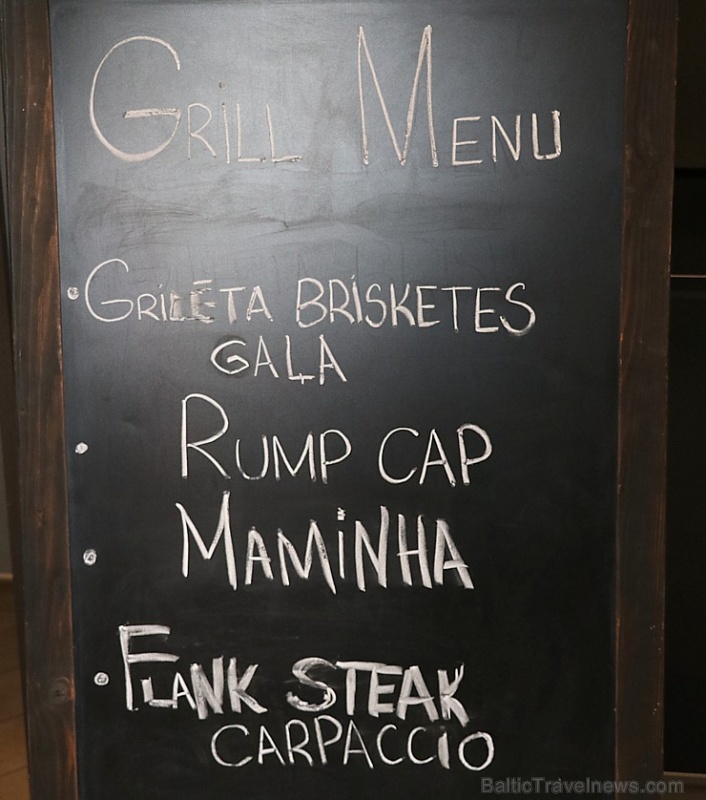 GRiLL MENU
• GRiLĒTA BRiSKETES
GALA
• RUMP CAP
• MAMiNHA
• FLANK STEAK
CARPACCiO
BalticTravelnews.com